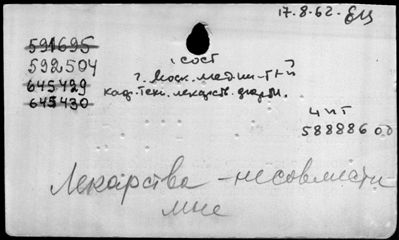 17.8.62.
591695
592504
645429
645430
сост
1. Моск. мед. ин-т
каф. техн. лекарств. форм.
чит
588886 00
Лекарства - несовмести
мые